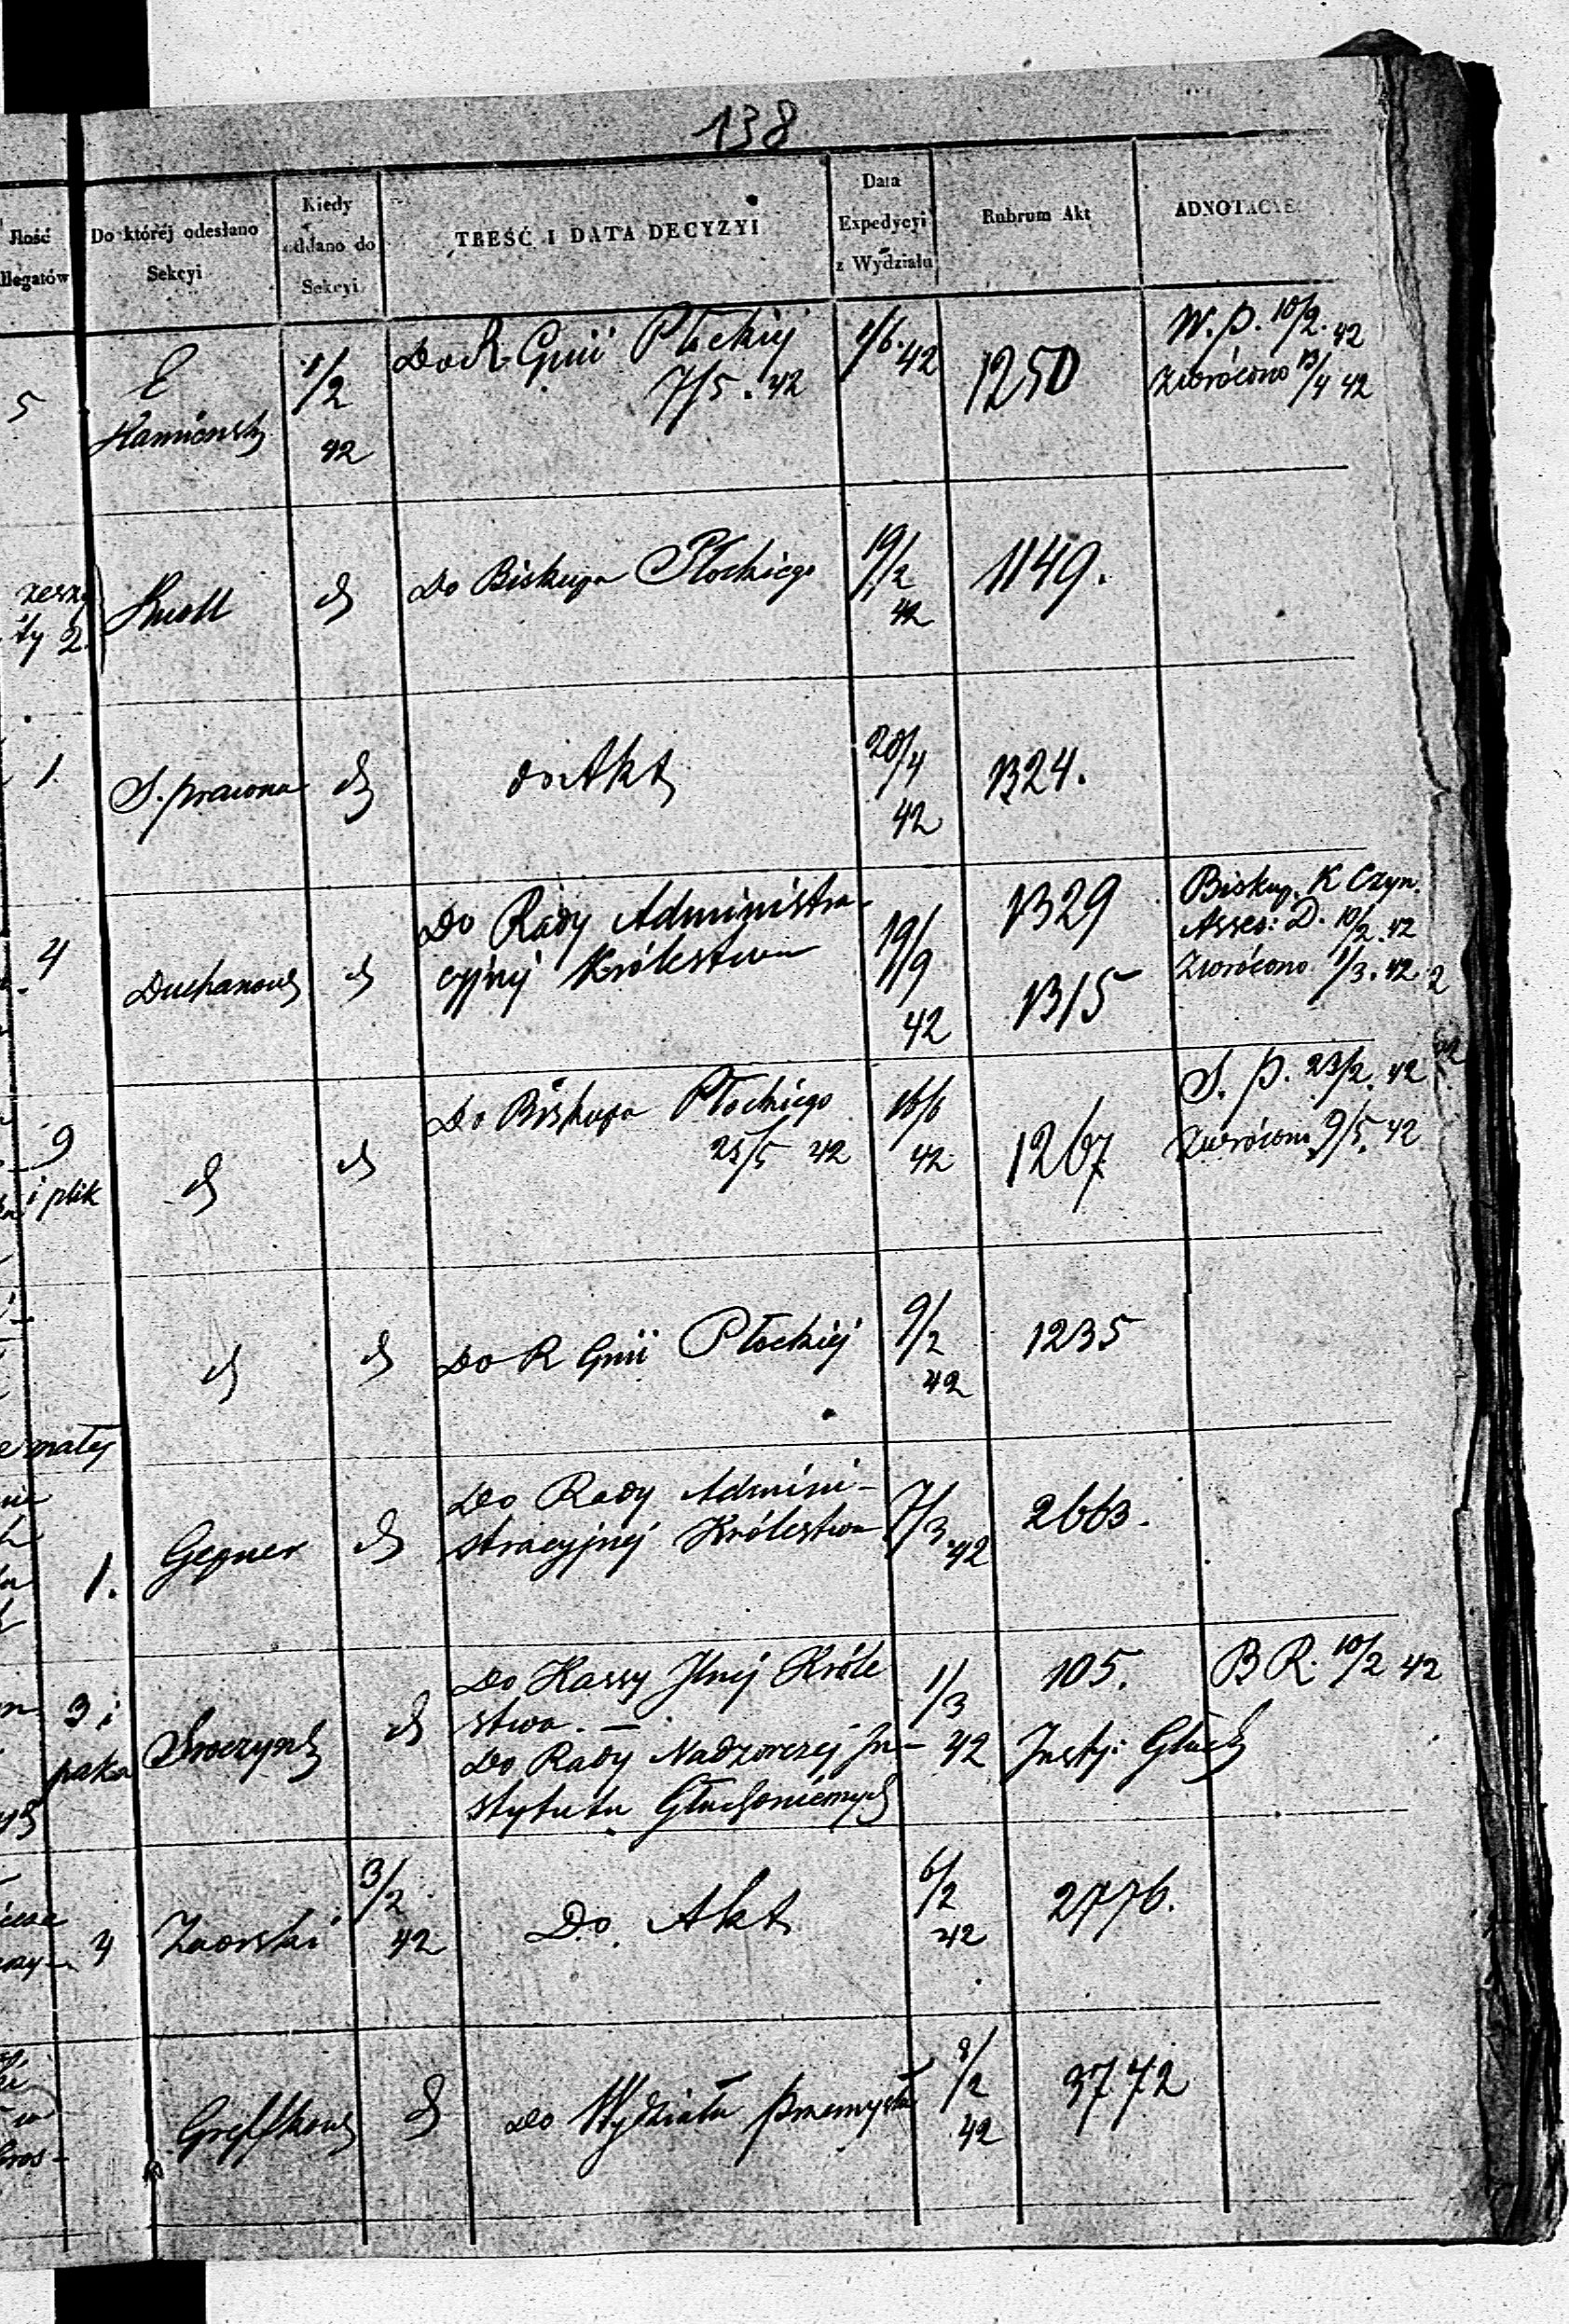 138
Ilość
llegatów
Do któréj odesłano
Sekcyi
Kiedy
oddano do
Sekcyi
TREŚĆ I DATA DECYZYI
Data
Expedycyi
z Wydziału
Rubrum Akt
ADNOTACYE
5
E
1/2
42
Do R. Gnii Płockiej
7/5. 42
1/6. 42
1250
W. P. 10/2. 42
Zwrócono 13/4 42
zeszy
ty 2.
Knoll
d
Do Biskupa Płockiego
19/2
42
1149.
1.
S. prawna
d
do Akt
20/4
42
1324.
4
Duchanows
d
Do Rady Administra-
cyjnej Królestwa
19/9
42
1329
1315
Biskup. K Czyn.
Asses: D. 10/2. 42
Zwrócono 1/3. 42
9
i plik
d
d
Do Biskupa Płockiego
25/5 42
16/6
42
1267
S. P. 23/2. 42
Zwrócono 9/5. 42
d
d
Do R Gnii Płockiej
9/2
42
1235
1.
Gepner
d
Do Rady Admini-
stracyjnej Królestwa
7/3 42
2663.
3 i
paka
d
Do Kassy Jlnej Króle
stwa. —
Do Rady Nadzorczej In-
stytutu Głuchoniemych
1/3
42
105.
Insty: Głuch
B R. 10/2 42
4
Zaorski
3/2
42
Do Akt
6/2
42
2776.
d
do Wydziału przemysłu
8/2
42
3742